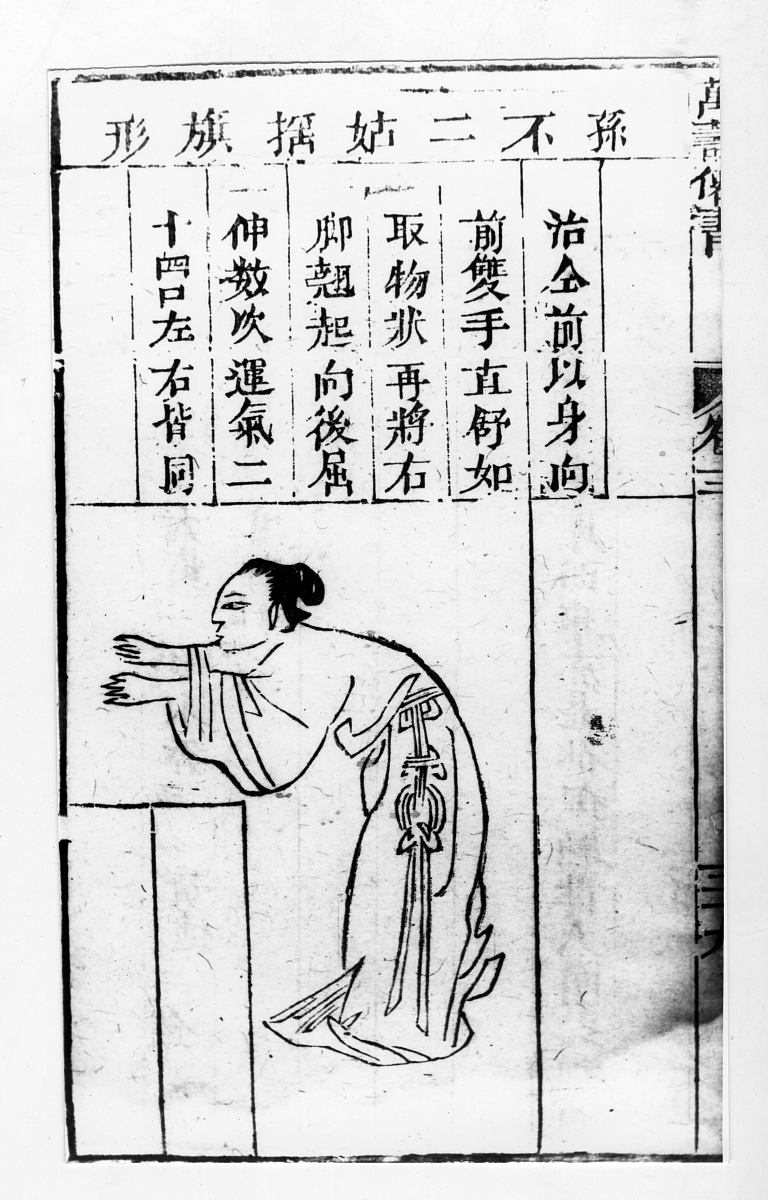 萬壽僊書
卷三
三十八
孫不二姑搖旗形
治仝前以身向
前雙手直舒如
取物狀再將右
脚翹起向後屈
一伸數吹運氣二
十四口左右皆同